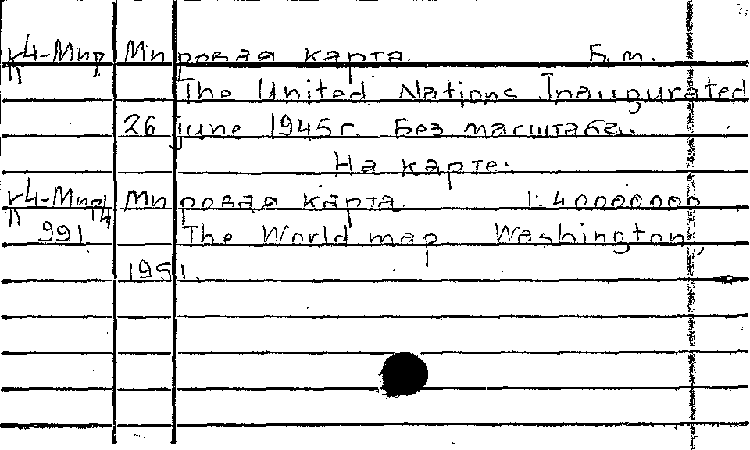 К4-Мир Мировая карта. Б.м.
The United Nations Inaugurated
26 june 1945г. Без масштаба.
На карте:
К4-Мир Мировая карта 1:40000000
991 The World map Washington,
1951.